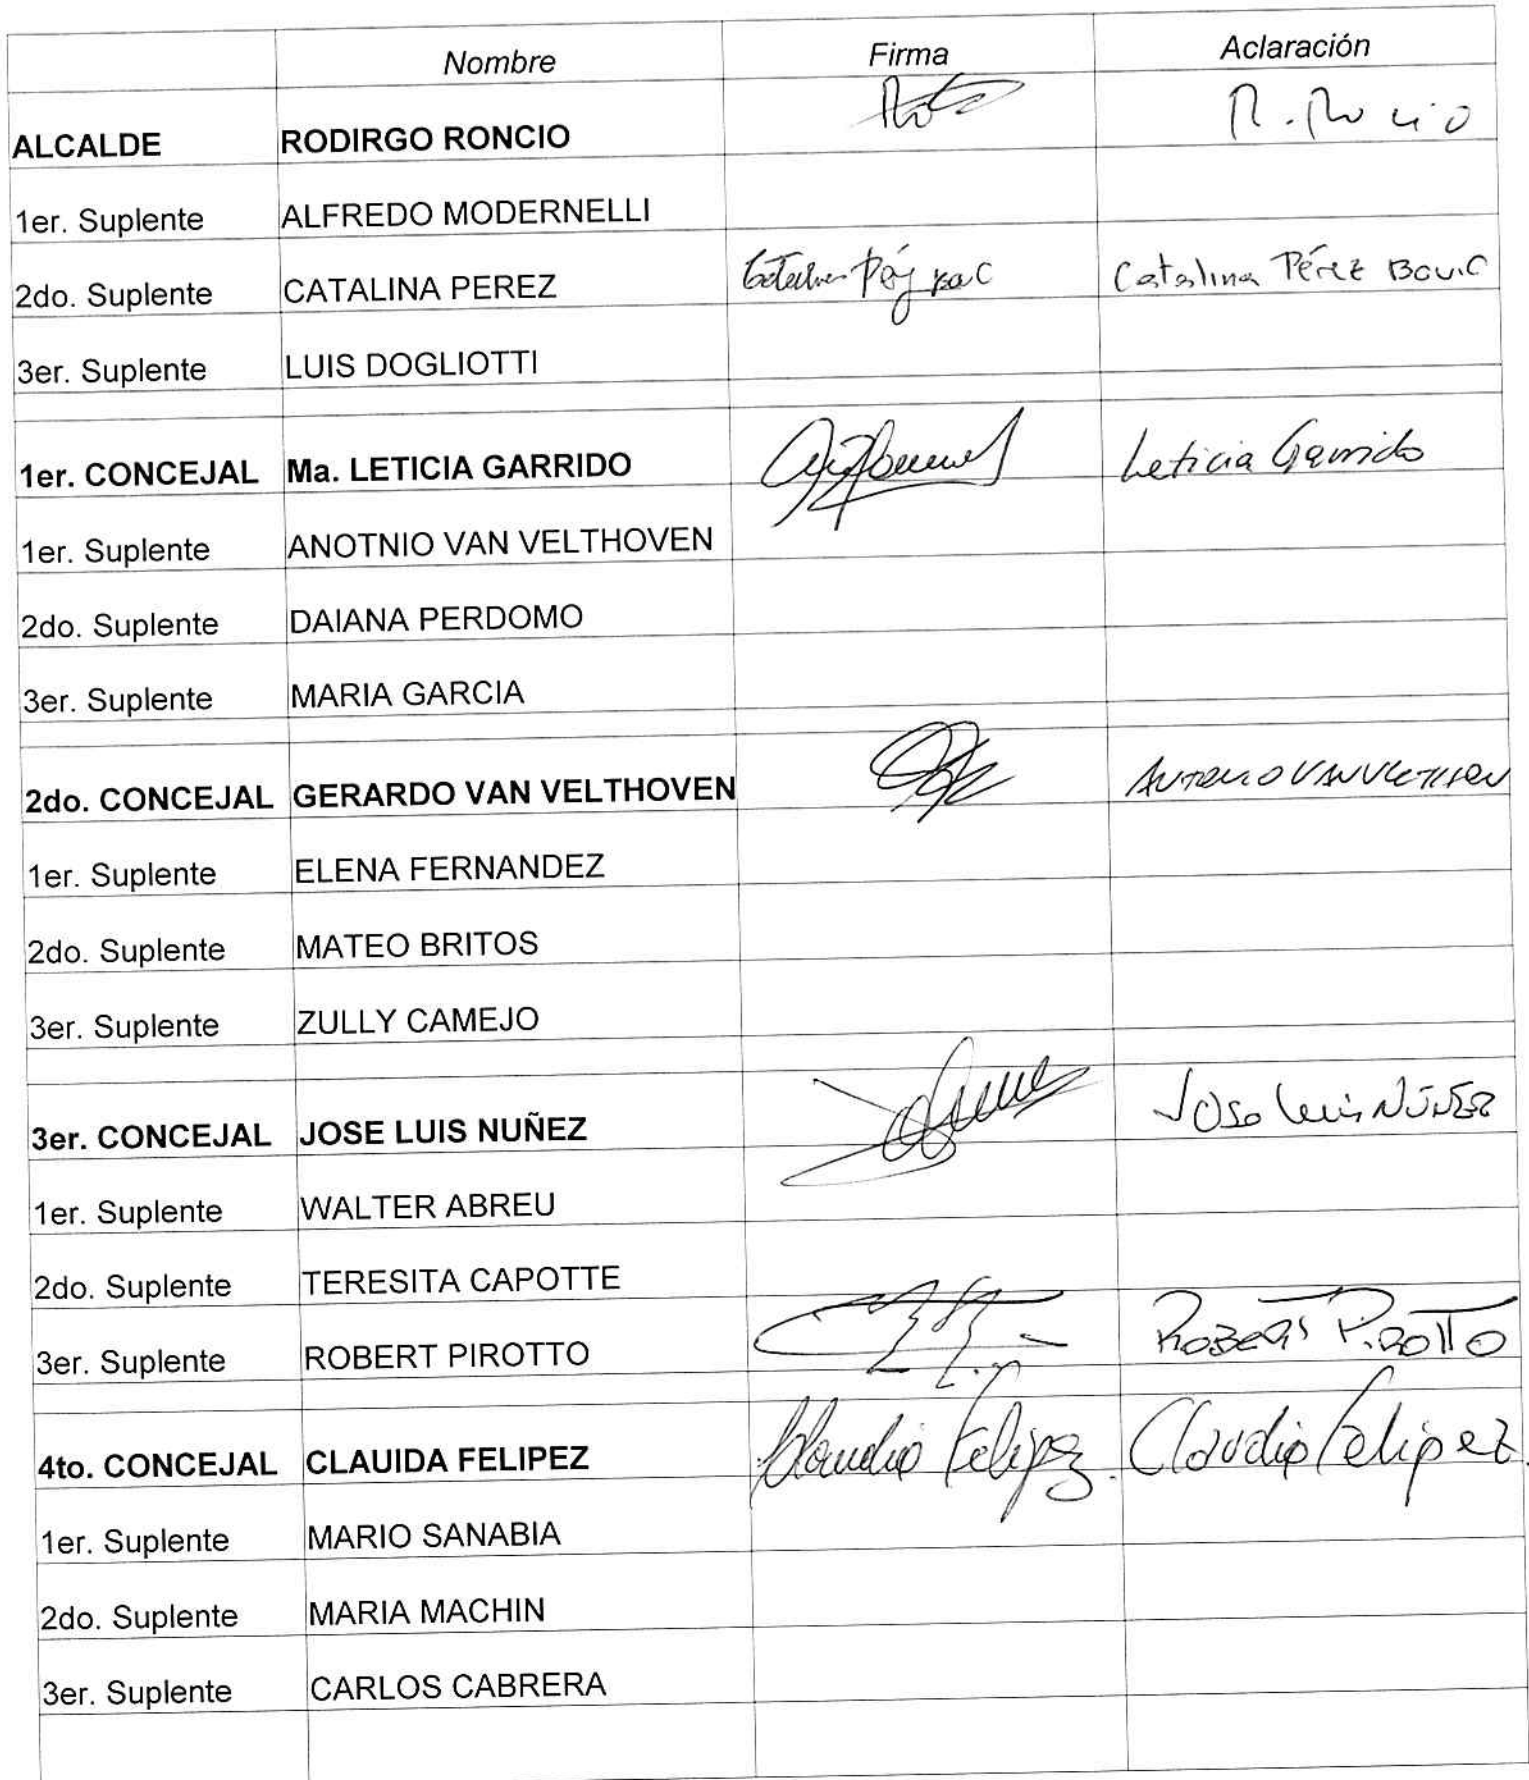 Nombre Firma Aclaración
ALCALDE RODIRGO RONCIO
1er. Suplente ALFREDO MODERNELLI
2do. Suplente CATALINA PEREZ Catalina Pérez
3er. Suplente LUIS DOGLIOTTI
1er. CONCEJAL Ma. LETICIA GARRIDO Leticia Garrido
1er. Suplente ANOTNIO VAN VELTHOVEN
2do. Suplente DAIANA PERDOMO
3er. Suplente MARIA GARCIA
2do. CONCEJAL GERARDO VAN VELTHOVEN ANTONIO VAN VELTHOVEN
1er. Suplente ELENA FERNANDEZ
2do. Suplente MATEO BRITOS
3er. Suplente ZULLY CAMEJO
3er. CONCEJAL JOSE LUIS NUÑEZ José Luis NÚÑEZ
1er. Suplente WALTER ABREU
2do. Suplente TERESITA CAPOTTE
3er. Suplente ROBERT PIROTTO ROBERT PIROTTO
4to. CONCEJAL CLAUIDA FELIPEZ Claudia Felipez. Claudia Felipez.
1er. Suplente MARIO SANABIA
2do. Suplente MARIA MACHIN
3er. Suplente CARLOS CABRERA